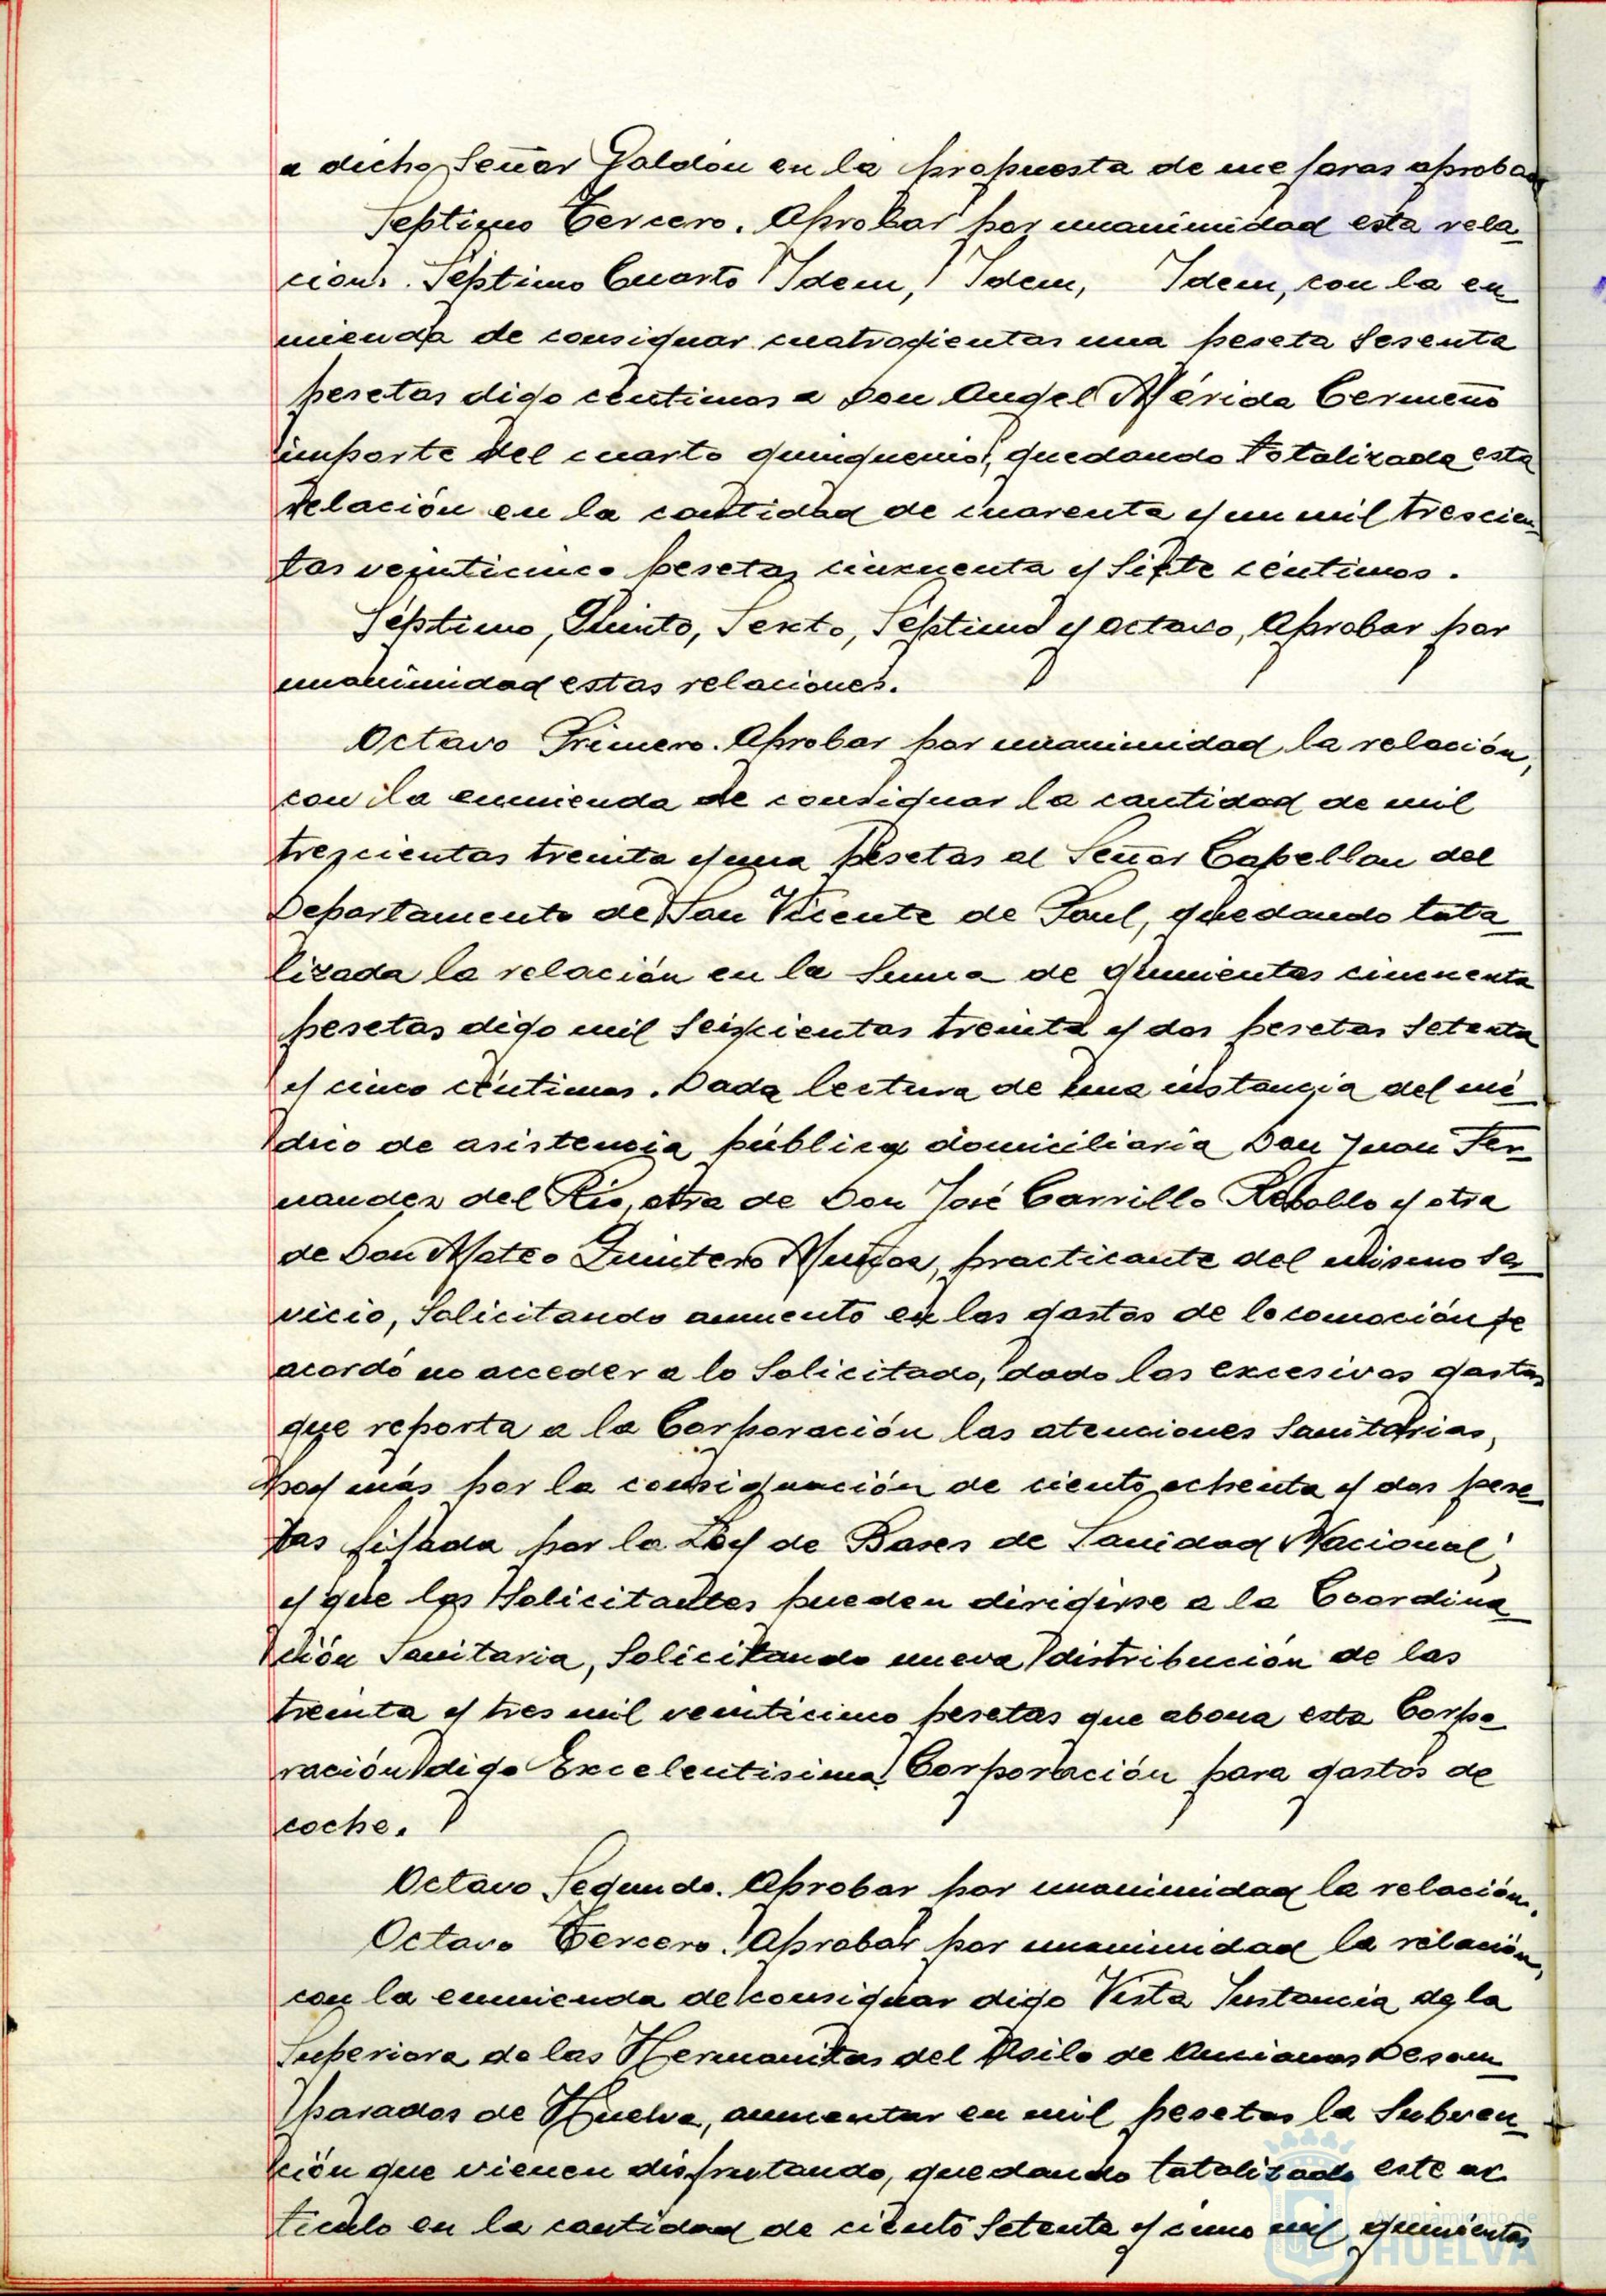 a dicho Señor Galdón en la propuesta de mejoras aprobada
Septimo Tercero. Aprobar por unanimidad esta rela-
cion. Séptimo Cuarto Idem, Idem, Idem, con la en-
mienda de consignar cuatrocientas una peseta sesenta
pesetas digo céntimos a Don Angel Mérida Cermeño
importe del cuarto quinquenio, quedando totalizada esta
relación en la cantidad de cuarenta y un mil trescien-
tas veinticinco pesetas cincuenta y siete céntimos.
Séptimo, Quinto, Sexto, Séptimo y octavo, Aprobar por
unanimidad estas relaciones.
Octavo Primero. Aprobar por unanimidad la relación,
con la enmienda de consignar la cantidad de mil
trescientas treinta y una pesetas al Señor Capellan del
Departamento de San Vicente de Paul, quedando tota-
lizada la relación en la suma de quinientas cincuenta
pesetas digo mil seiscientas treinta y dos pesetas setenta
y cinco céntimos. Dada lectura de una instancia del mé-
dico de asistencia pública domiciliaria Don Juan Fer-
nandez del Río, otra de Don José Carrillo Rebollo y otra
de Don Mateo Quintero Muñoz, practicante del mismo ser-
vicio, solicitando aumento en los gastos de locomoción se
acordó no acceder a lo solicitado, dado los excesivos gastos
que reporta a la Corporación las atenciones Sanitarias,
hoy más por la consignación de ciento ochenta y dos pese-
tas fijada por la Ley de Bases de Sanidad Nacional;
y que los solicitantes pueden dirigirse a la Coordina-
ción Sanitaria, solicitando nueva distribución de las
treinta y tres mil veinticinco pesetas que abona esta Corpo-
ración digo Excelentisima Corporación para gastos de
coche.
Octavo Segundo. Aprobar por unanimidad la relación.
Octavo Tercero. Aprobar por unanimidad la relación,
con la enmienda de consignar digo Vista Instancia de la
Superiora de las Hermanitas del Asilo de Ancianos Desam-
parados de Huelva, aumentar en mil pesetas la subven-
ción que vienen disfrutando, quedando totalizado este ar-
ticulo en la cantidad de ciento setenta y cinco mil quinientas
Ayuntamiento de
HUELVA